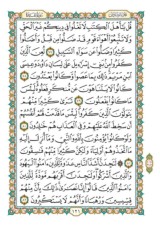 قُلْ يَٰٓأَهْلَ ٱلْكِتَٰبِ لَا تَغْلُوا۟ فِى دِينِكُمْ غَيْرَ ٱلْحَقِّ
وَلَا تَتَّبِعُوٓا۟ أَهْوَآءَ قَوْمٍ قَدْ ضَلُّوا۟ مِن قَبْلُ وَأَضَلُّوا۟
كَثِيرًا وَضَلُّوا۟ عَن سَوَآءِ ٱلسَّبِيلِ ٧٧ لُعِنَ ٱلَّذِينَ
كَفَرُوا۟ مِنۢ بَنِىٓ إِسْرَٰٓءِيلَ عَلَىٰ لِسَانِ دَاوُۥدَ وَعِيسَى
ٱبْنِ مَرْيَمَ ذَٰلِكَ بِمَا عَصَوا۟ وَّكَانُوا۟ يَعْتَدُونَ ٧٨
كَانُوا۟ لَا يَتَنَاهَوْنَ عَن مُّنكَرٍ فَعَلُوهُ لَبِئْسَ
مَا كَانُوا۟ يَفْعَلُونَ ٧٩ تَرَىٰ كَثِيرًا مِّنْهُمْ
يَتَوَلَّوْنَ ٱلَّذِينَ كَفَرُوا۟ لَبِئْسَ مَا قَدَّمَتْ لَهُمْ أَنفُسُهُمْ
أَن سَخِطَ ٱللَّهُ عَلَيْهِمْ وَفِى ٱلْعَذَابِ هُمْ خَٰلِدُونَ ٨٠
وَلَوْ كَانُوا۟ يُؤْمِنُونَ بِٱللَّهِ وَٱلنَّبِىِّ وَمَآ أُنزِلَ إِلَيْهِ
مَا ٱتَّخَذُوهُمْ أَوْلِيَآءَ وَلَٰكِنَّ كَثِيرًا مِّنْهُمْ فَٰسِقُونَ
٨١ لَتَجِدَنَّ أَشَدَّ ٱلنَّاسِ عَدَٰوَةً لِّلَّذِينَ ءَامَنُوا۟ ٱلْيَهُودَ
وَٱلَّذِينَ أَشْرَكُوا۟ وَلَتَجِدَنَّ أَقْرَبَهُم مَّوَدَّةً لِّلَّذِينَ
ءَامَنُوا۟ ٱلَّذِينَ قَالُوٓا۟ إِنَّا نَصَٰرَىٰ ذَٰلِكَ بِأَنَّ مِنْهُمْ
قِسِّيسِينَ وَرُهْبَانًا وَأَنَّهُمْ لَا يَسْتَكْبِرُونَ ٨٢
١٢١